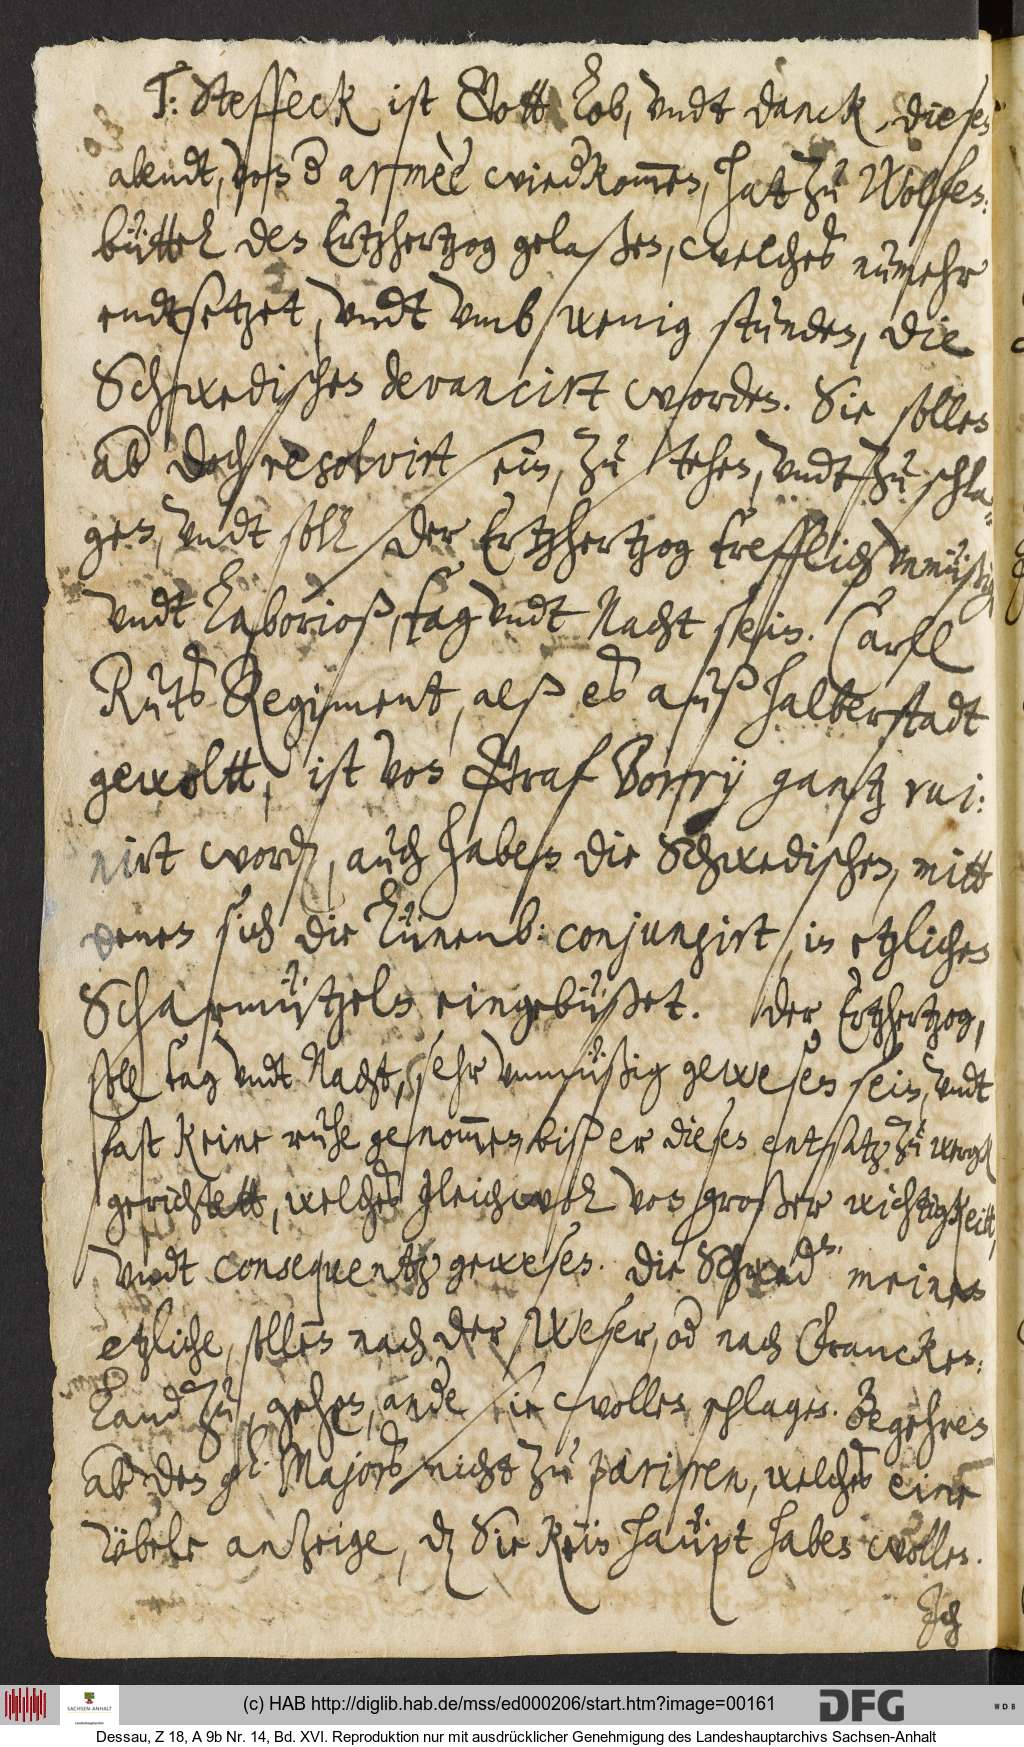 T: Steffeck ist Gott Lob, vndt danck, diesen
abendt, von d armèe wiedkom̅en, hat zu Wolffen:
büttel den Ertzhertzog gelaßen, welches numehr
endtsetzet, vndt vmb wenig stunden, die
Schwedischen devancirt worden. Sie sollen
ab doch resolvirt sein, zu stehen, vndt zu schla=
gen, vndt soll der Ertzhertzog trefflich vnmüßig
vndt Laborioß, tag vndt Nacht sein. Carll
Ruts Regiment, alß es auß halberstadt
gewoltt, ist von Graf Borry gantz rui:
nirt word, auch haben die Schwedischen, mitt
denen sich die Lünenb: conjungirt, in etzlichen
Scharmützeln eingebüßet. Der Ertzhertzog,
soll tag vndt Nacht, sehr vnmüßig gewesen sein, vndt
fast keine ruhe genom̅en, biß er diesen entsatz zu werck
gerichtett, welches gleichwol von großer wichtigkeitt,
vndt consequentz gewesen. Die Schwed.en meinen
etzliche, sollen nach der Weser, od nach Francken:
Land zu, gehen, ande sie wollen schlagen. Begehren
ab den gl. Majors nicht zu pariren, welches eine
vbele anzeige, dz Sie kein haupt haben wollen.
Jch
(c) HAB http://diglib.hab.de/mss/ed000206/start.htm?image=00161
SACHSEN-ANHALT
DFG
WDB
Dessau, Z 18, A 9b Nr. 14, Bd. XVI. Reproduktion nur mit ausdrücklicher Genehmigung des Landeshauptarchivs Sachsen-Anhalt